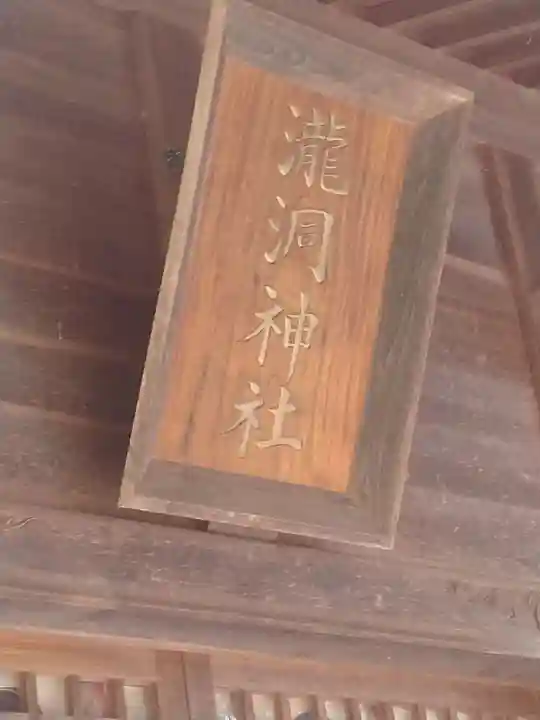 瀧洞神社